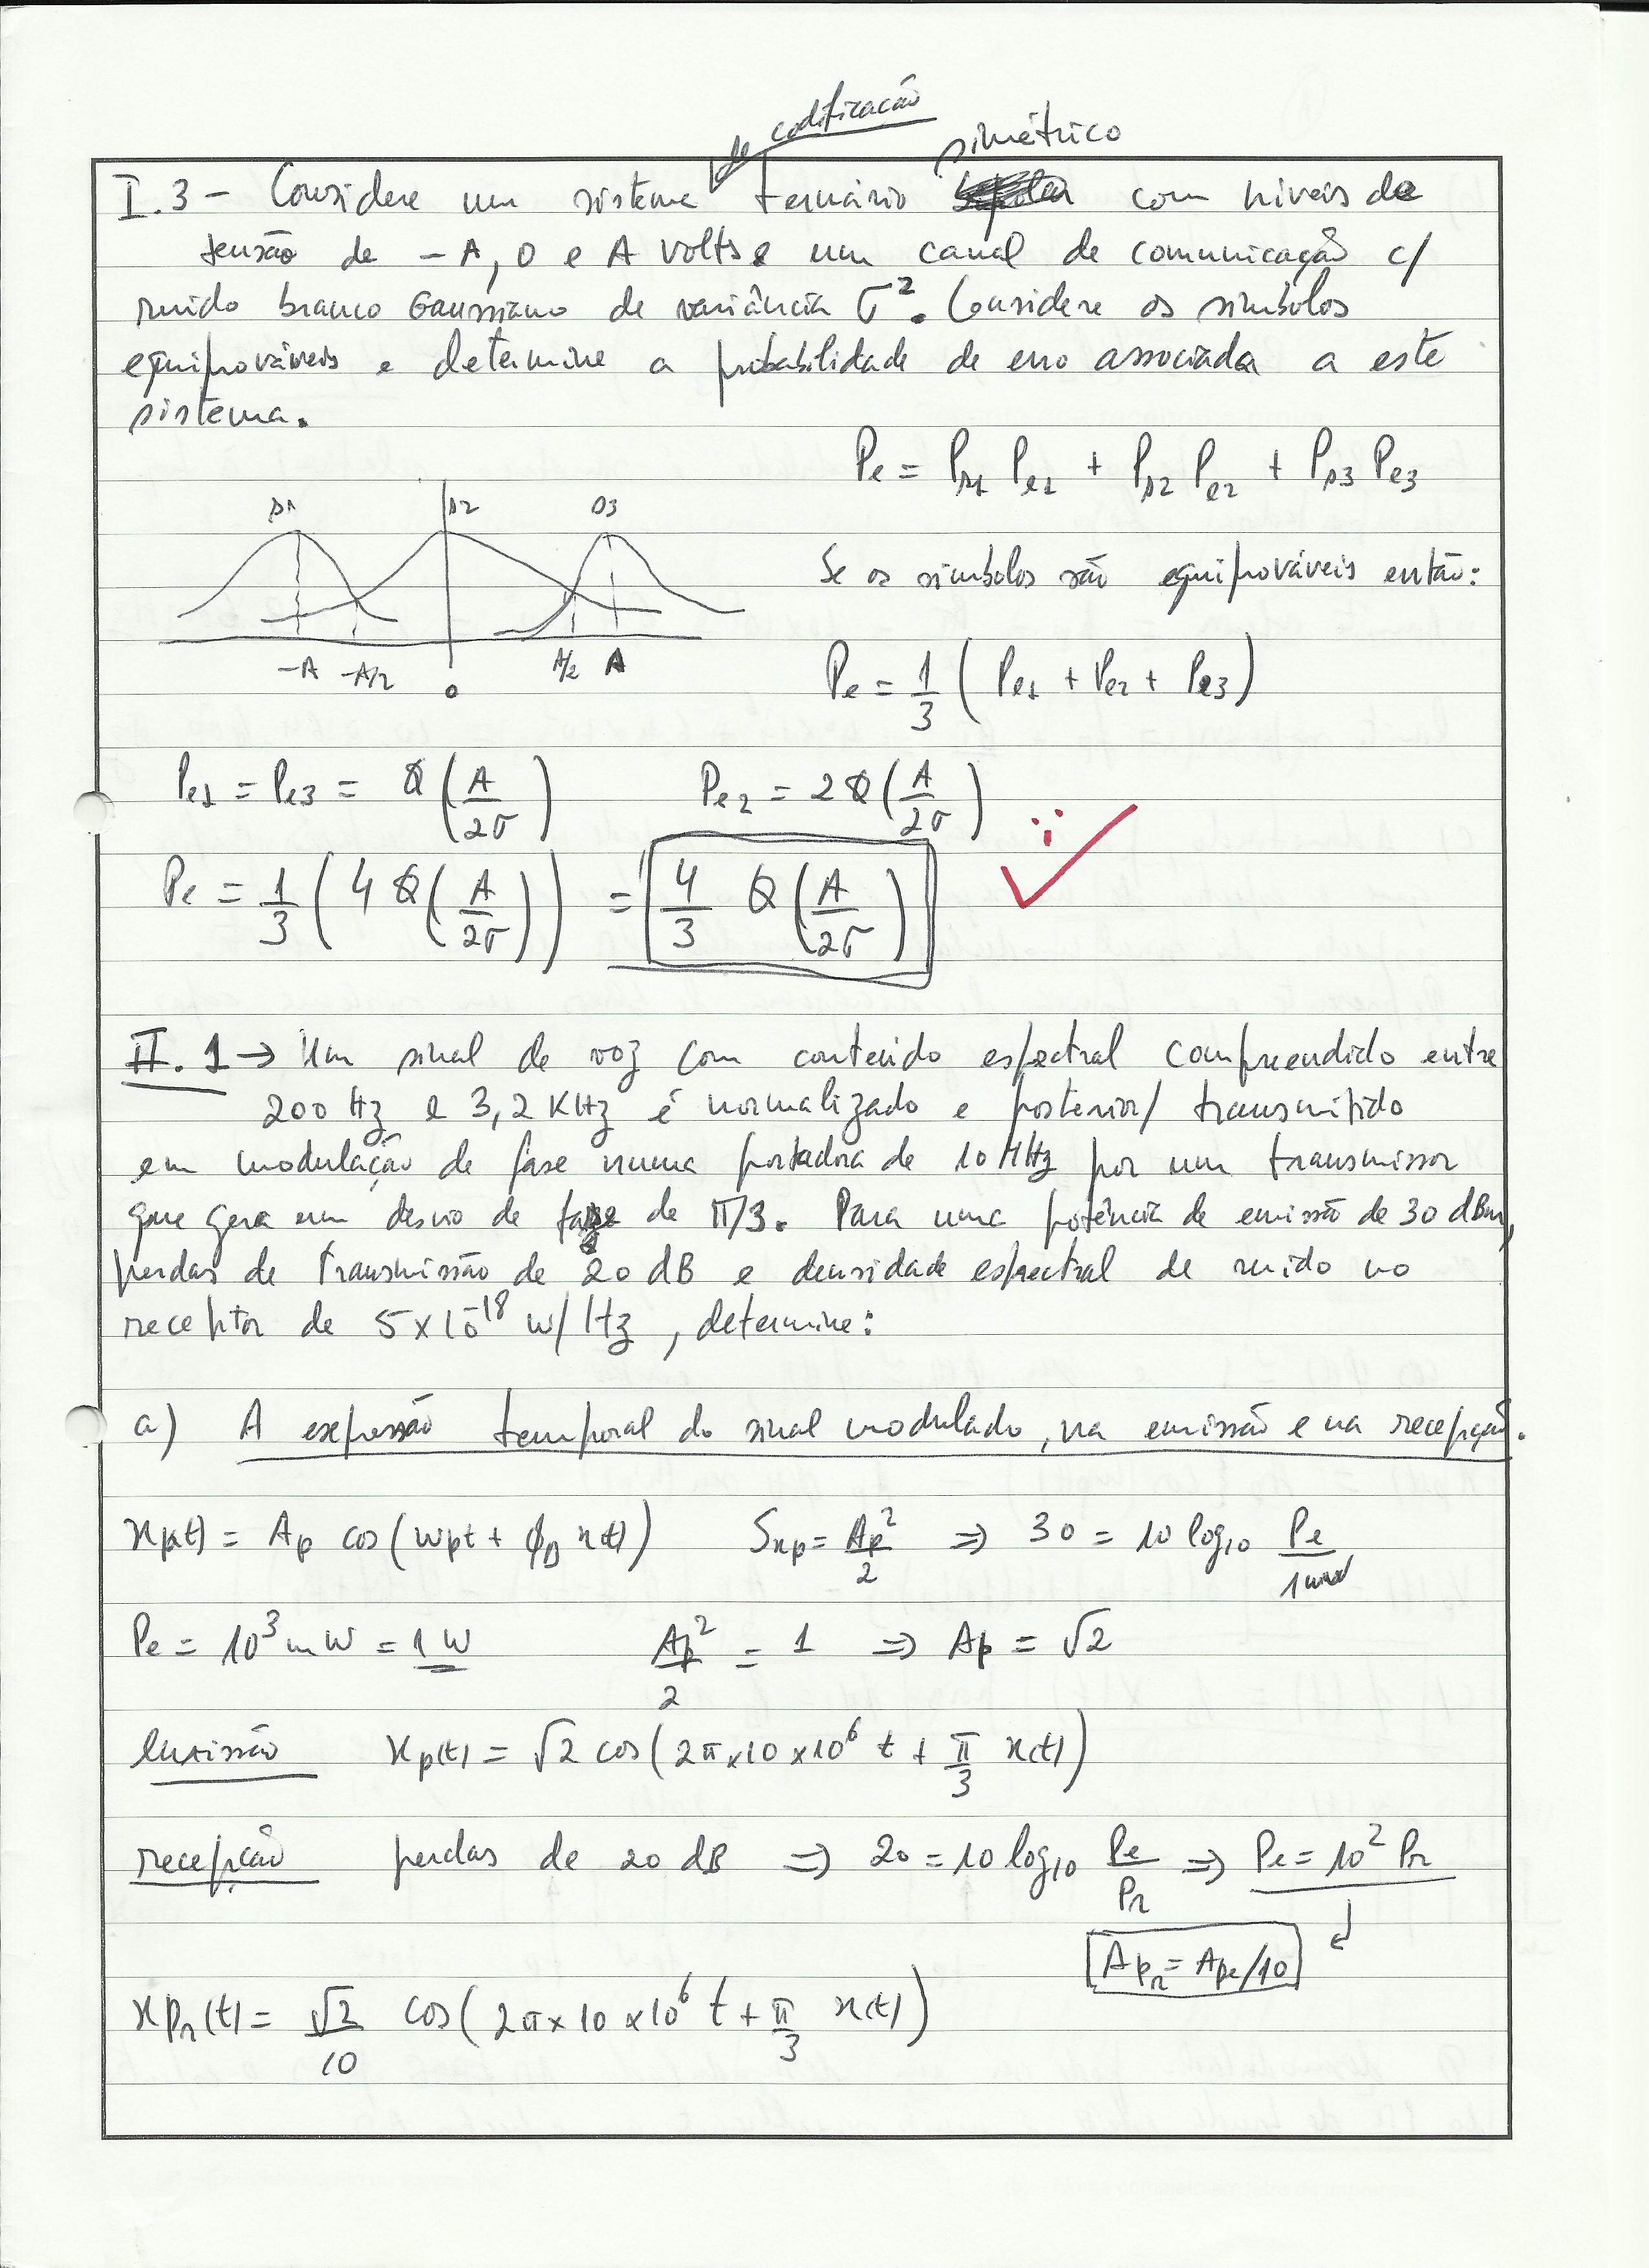 de codificação
simétrico
I.3 - Considere um sistema ternário com níveis de
tensão de -A, 0 e A volts e um canal de comunicação c/
ruído branco Gaussiano de variância σ². Considere os símbolos
equiprováveis e determine a probabilidade de erro associada a este
sistema.
Pe = Ps1 Pe1 + Ps2 Pe2 + Ps3 Pe3
s1 s2 s3
Se os símbolos são equiprováveis então:
-A -A/2 0 A/2 A
Pe = 1/3 ( Pe1 + Pe2 + Pe3 )
Pe1 = Pe3 = Q(A/2σ) Pe2 = 2Q(A/2σ)
Pe = 1/3 ( 4 Q(A/2σ) ) = 4/3 Q(A/2σ)
II.1 → Um sinal de voz com conteúdo espectral compreendido entre
200 Hz e 3,2 KHz é normalizado e posterior/ transmitido
em modulação de fase numa portadora de 10 MHz por um transmissor
que gera um desvio de fase de π/3. Para uma potência de emissão de 30 dBm,
perdas de transmissão de 20 dB e densidade espectral de ruído no
receptor de 5×10⁻¹⁸ W/Hz, determine:
a) A expressão temporal do sinal modulado, na emissão e na recepção.
xp(t) = Ap cos(wpt + φΔ x(t)) Sxp = Ap²/2 ⇒ 30 = 10 log10 Pe/1mW
Pe = 10³ mW = 1 W Ap²/2 = 1 ⇒ Ap = √2
Emissão xp(t) = √2 cos(2π×10×10⁶ t + π/3 x(t))
recepção perdas de 20 dB ⇒ 20 = 10 log10 Pe/Pr ⇒ Pe = 10² Pr
Apr = Ape/10
xpr(t) = √2/10 cos(2π×10×10⁶ t + π/3 x(t))